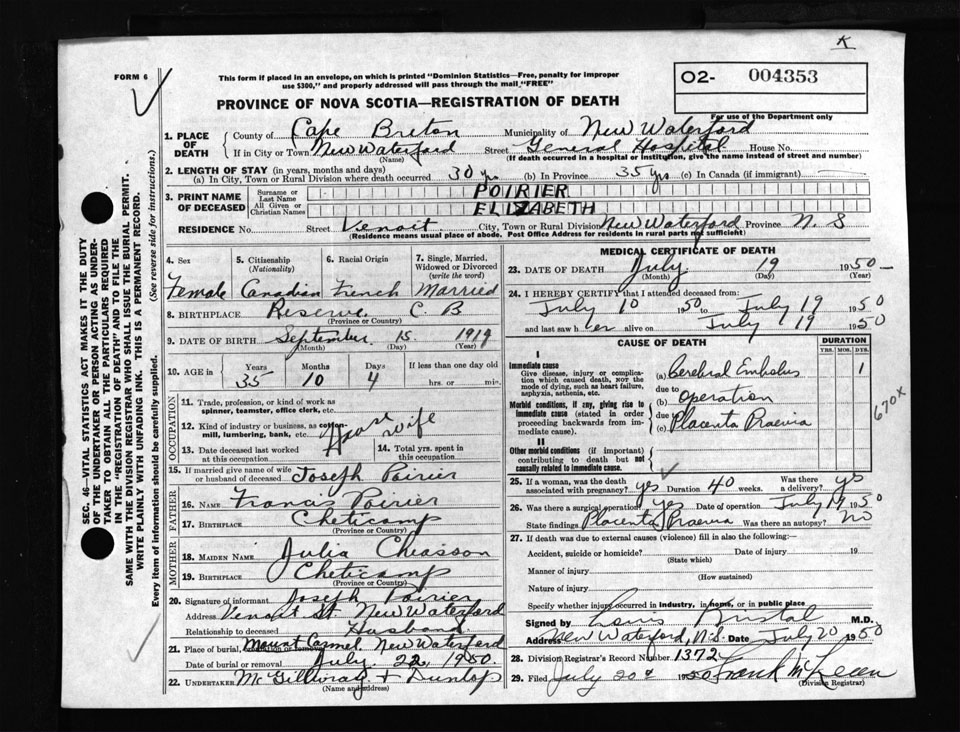 K
FORM 6
This form if placed in an envelope, on which is printed "Dominion Statistics—Free, penalty for improper
use $300," and properly addressed will pass through the mail "FREE"
O2- 004353
For use of the Department only
PROVINCE OF NOVA SCOTIA—REGISTRATION OF DEATH
1. PLACE OF DEATH County of Cape Breton Municipality of New Waterford
If in City or Town New Waterford (Name) Street General Hospital House No.
(If death occurred in a hospital or institution, give the name instead of street and number)
2. LENGTH OF STAY (in years, months and days)
(a) In City, Town or Rural Division where death occurred 30 yrs (b) In Province 35 yrs (c) In Canada (if immigrant)
3. PRINT NAME OF DECEASED Surname or Last Name POIRIER
All Given or Christian Names ELIZABETH
RESIDENCE No. Street Venoit City, Town or Rural Division New Waterford Province N. S
(Residence means usual place of abode. Post Office Address for residents in rural parts not sufficient)
4. Sex 5. Citizenship (Nationality) 6. Racial Origin 7. Single, Married, Widowed or Divorced (write the word)
Female Canadian French Married
8. BIRTHPLACE Reserve C. B.
(Province or Country)
9. DATE OF BIRTH September 15 1914
(Month) (Day) (Year)
10. AGE in Years Months Days If less than one day old
35 10 4 hrs. or min.
OCCUPATION
11. Trade, profession, or kind of work as
spinner, teamster, office clerk, etc.
12. Kind of industry or business, as cotton-
mill, lumbering, bank, etc. House wife
13. Date deceased last worked at this occupation 14. Total yrs. spent in this occupation
15. If married give name of wife or husband of deceased Joseph Poirier
FATHER
16. NAME Francis Poirier
17. BIRTHPLACE Cheticamp
(Province or Country)
MOTHER
18. MAIDEN NAME Julia Chiasson
19. BIRTHPLACE Cheticamp
(Province or Country)
20. Signature of informant Joseph Poirier
Address Venoit St. New Waterford
Relationship to deceased Husband
21. Place of burial, cremation or removal Mount Carmel, New Waterford
Date of burial or removal July 22, 1950.
22. UNDERTAKER McGillivray & Dunlop
(Name and address)
MEDICAL CERTIFICATE OF DEATH
23. DATE OF DEATH July 19 1950
(Month) (Day) (Year)
24. I HEREBY CERTIFY that I attended deceased from:
July 10 1950 to July 19 1950
and last saw h er alive on July 19 1950
CAUSE OF DEATH DURATION
YRS. MOS. DYS.
I
Immediate cause
Give disease, injury or complica-
tion which caused death, not the
mode of dying, such as heart failure,
asphyxia, asthenia, etc.
(a) Cerebral Embolus 1
due to
Morbid conditions, if any, giving rise to
immediate cause (stated in order
proceeding backwards from im-
mediate cause).
(b) Operation
due to
(c) Placenta Praevia
670X
II
Other morbid conditions (if important)
contributing to death but not
causally related to immediate cause.
25. If a woman, was the death associated with pregnancy? yes Duration 40 weeks. Was there a delivery? yes
26. Was there a surgical operation? Yes Date of operation July 19 1950
State findings Placenta Praevia Was there an autopsy? No
27. If death was due to external causes (violence) fill in also the following:
Accident, suicide or homicide? Date of injury 19
(State which)
Manner of injury
(How sustained)
Nature of injury
Specify whether injury occurred in industry, in home, or in public place
Signed by Louis Bristal M.D.
Address New Waterford, N.S. Date July 20 1950
28. Division Registrar's Record Number 1372
29. Filed July 20 1950 Frank
(Division Registrar)
SEC. 46—VITAL STATISTICS ACT MAKES IT THE DUTY
OF THE UNDERTAKER OR PERSON ACTING AS UNDER-
TAKER TO OBTAIN ALL THE PARTICULARS REQUIRED
IN THE "REGISTRATION OF DEATH" AND TO FILE THE
SAME WITH THE DIVISION REGISTRAR WHO SHALL ISSUE THE BURIAL PERMIT.
WRITE PLAINLY WITH UNFADING INK. THIS IS A PERMANENT RECORD.
Every item of information should be carefully supplied. (See reverse side for instructions.)